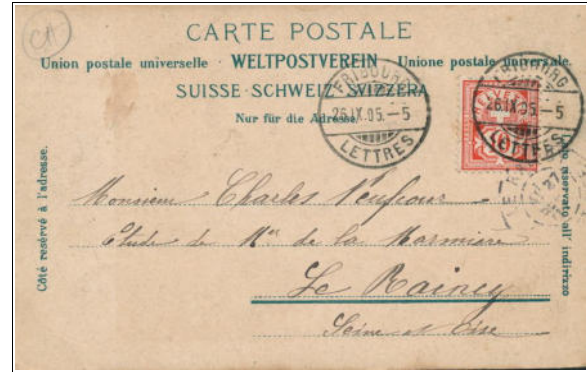 CA
CARTE POSTALE
Union postale universelle · WELTPOSTVEREIN · Unione postale universale.
SUISSE·SCHWEIZ·SVIZZERA
Nur für die Adresse.
FRIBOURG
26.IX.05.–5
LETTRES
FRIBOURG
26.IX.05.–5
LETTRES
10
Côté reservé à l'adresse.
Lato riservato all' indirizzo
Monsieur Charles
Etude de Me de la Marnière
Le Raincy
Seine et Oise